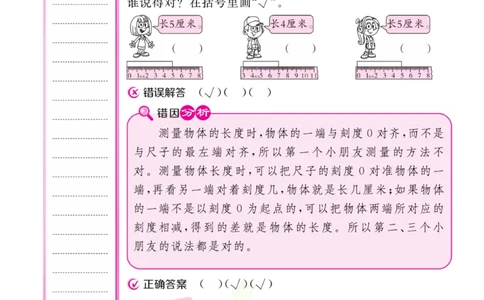 谁说得对？在括号里画“√”。
长5厘米。 长4厘米。 长5厘米。
（ ） （ ） （ ）
错误解答 （√）（ ）（ ）
错因分析
测量物体的长度时，物体的一端与刻度0对齐，而不是
与尺子的最左端对齐，所以第一个小朋友测量的方法不
对。测量物体长度时，可以把尺子的刻度0对准物体的一
端，再看另一端对着刻度几，物体就是长几厘米；如果物体
的一端不是以刻度0为起点的，可以把物体两端所对应的
刻度相减，得到的差就是物体的长度。所以第二、三个小
朋友的说法都是对的。
正确答案 （ ）（√）（√）